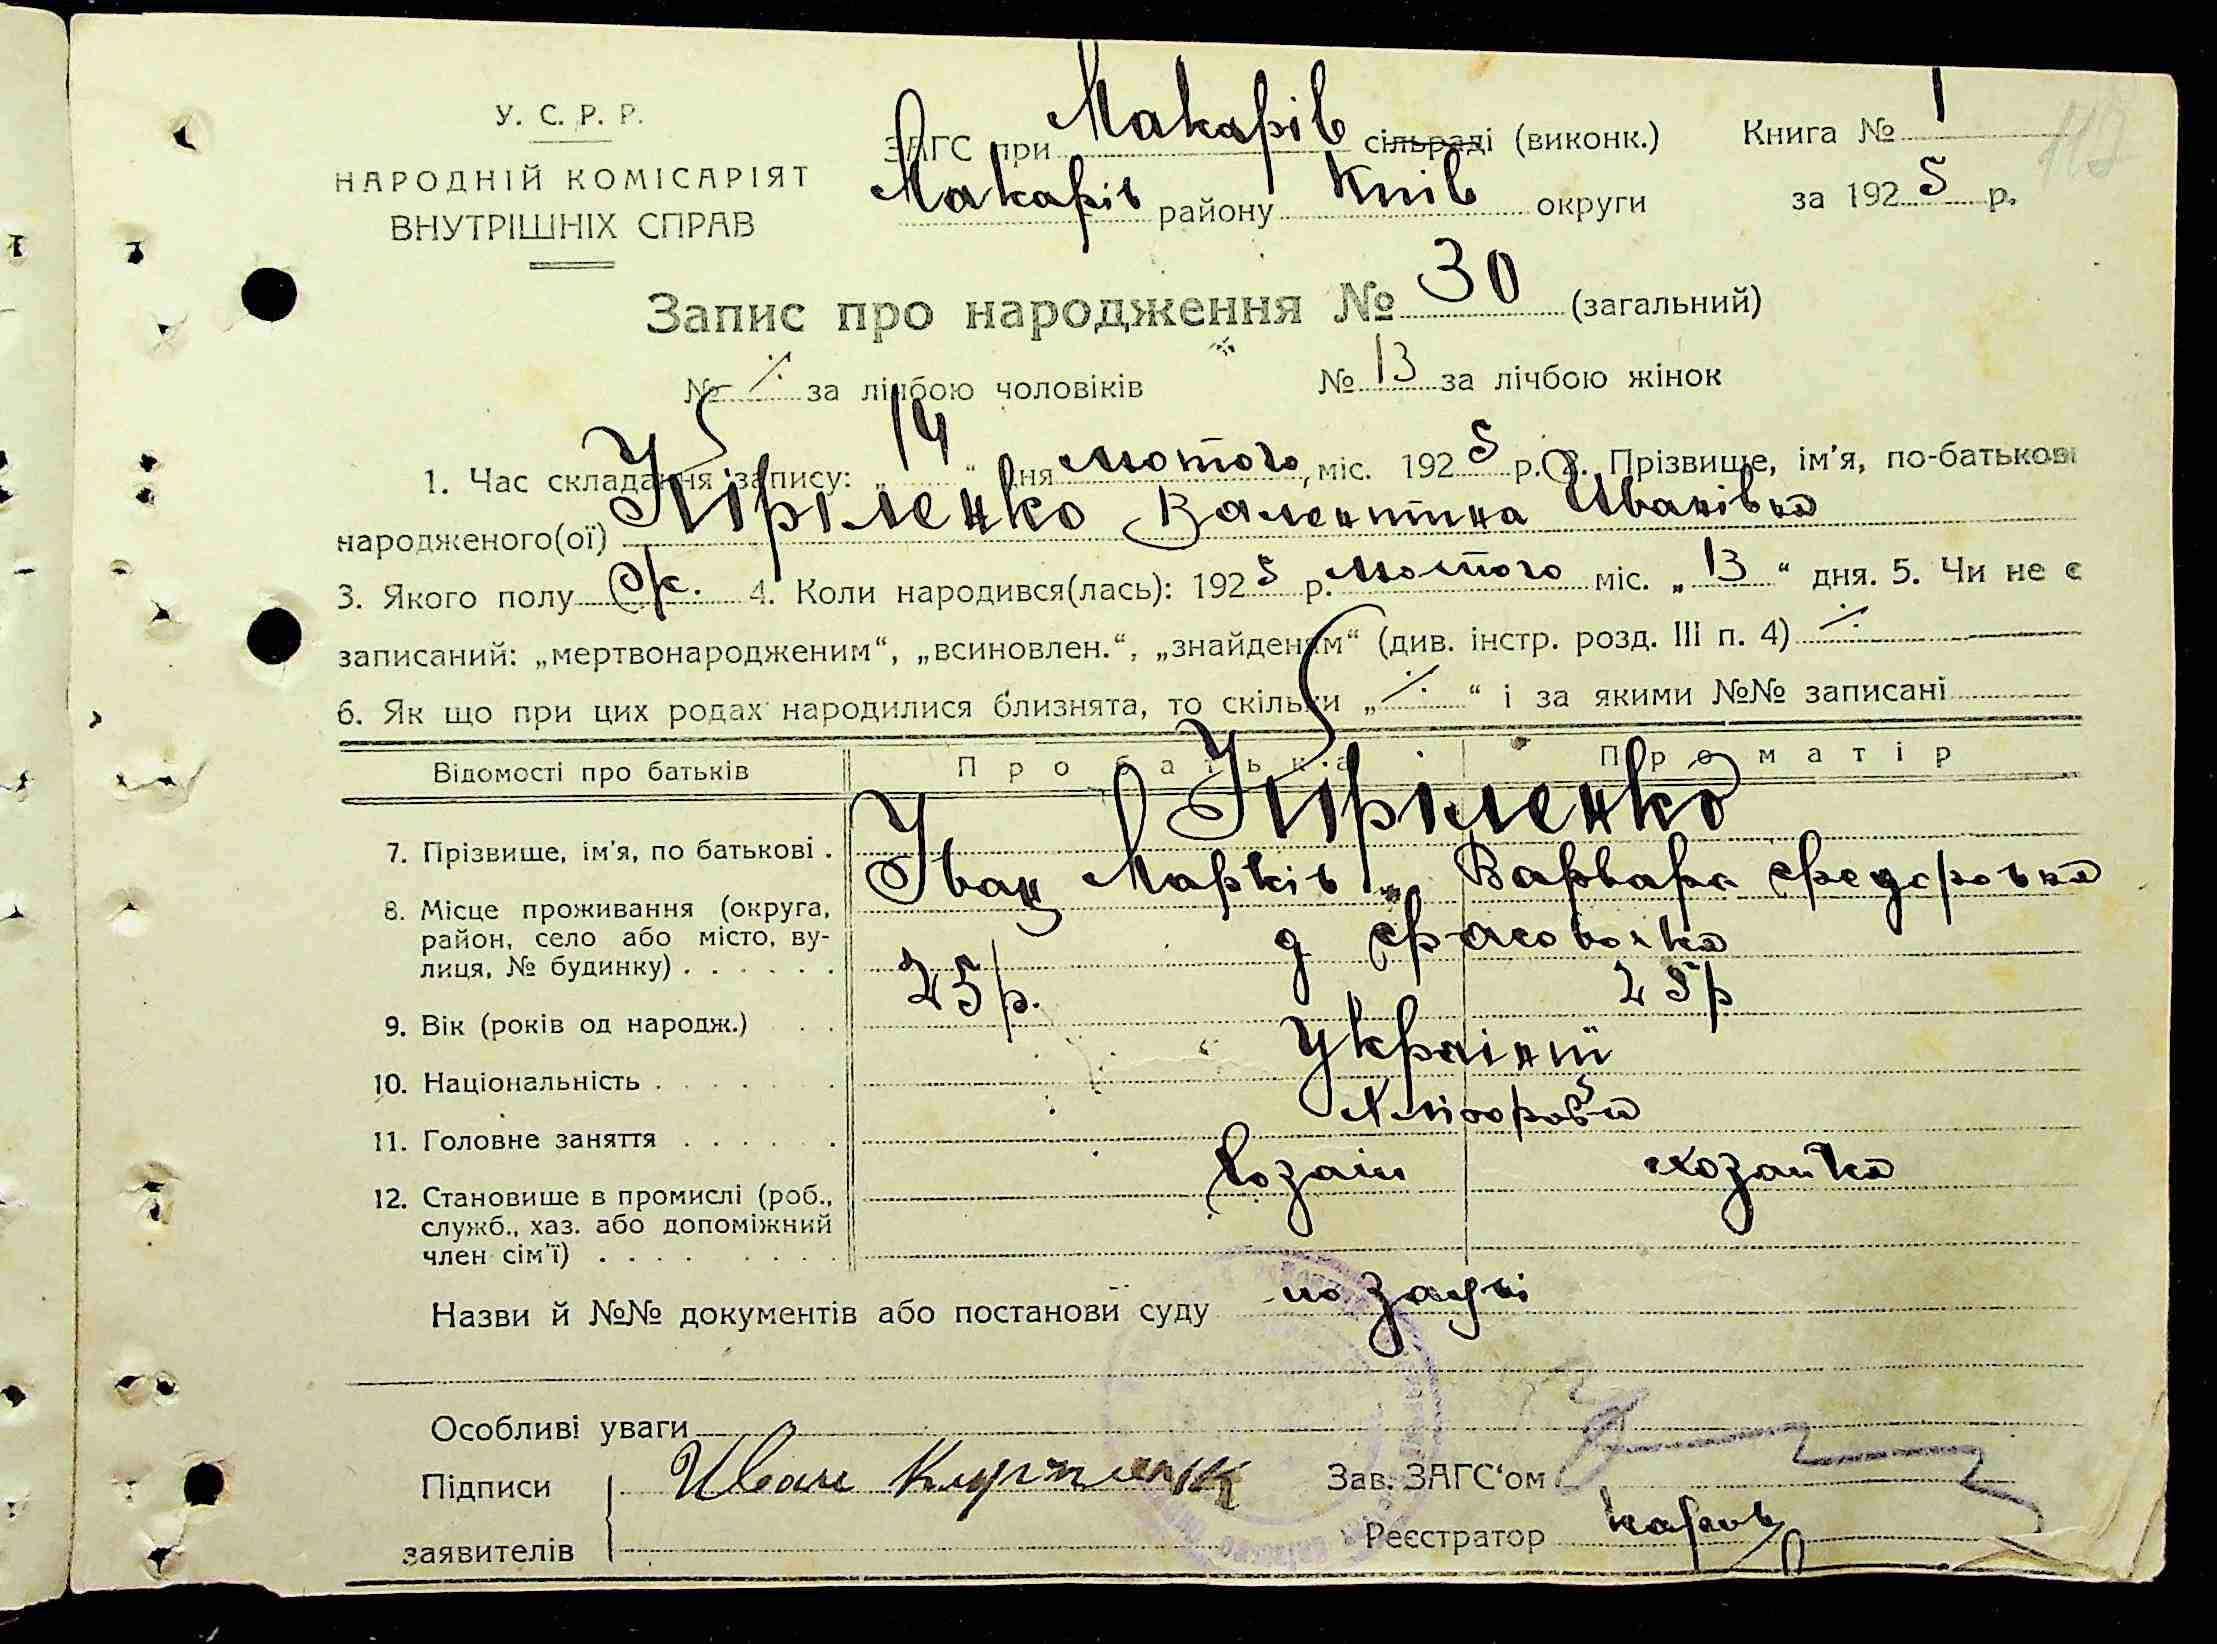 У. С. Р. Р.
НАРОДНІЙ КОМІСАРІЯТ
ВНУТРІШНІХ СПРАВ
ЗАГС при Макарів сільраді (виконк.) Книга № 1
117
Макарів району Київ округи за 1925 р.
Запис про народження № 30 (загальний)
№ ·/· за лічбою чоловіків № 13 за лічбою жінок
1. Час складання запису: „14“ дня лютого міс. 1925 р. 2. Прізвище, ім'я, по-батькові
народженого(ої) Кіріленко Валентина Иванівна
3. Якого полу ж. 4. Коли народився(лась): 1925 р. лютого міс. „13“ дня. 5. Чи не є
записаний: „мертвонародженим“, „всиновлен.“, „знайденим“ (див. інстр. розд. III п. 4) ·/·
6. Як що при цих родах народилися близнята, то скільки „·/·“ і за якими №№ записані
Відомості про батьків Про батька Про матір
7. Прізвище, ім'я, по батькові . Кіріленко
Іван Марків Варвара Федоровна
8. Місце проживання (округа,
район, село або місто, ву-
лиця, № будинку) . . . . . . д
9. Вік (років од народж.) . . 25 р. 25 р
10. Національність . . . . . . . Українці
11. Головне заняття . . . . . . Хліборобя
12. Становище в промислі (роб.,
служб., хаз. або допоміжний
член сім'ї) . . . . . . . . . Хозаін хозайка
Назви й №№ документів або постанови суду по заяві
Особливі уваги
Підписи Иван Зав. ЗАГС'ом
заявителів Реєстратор